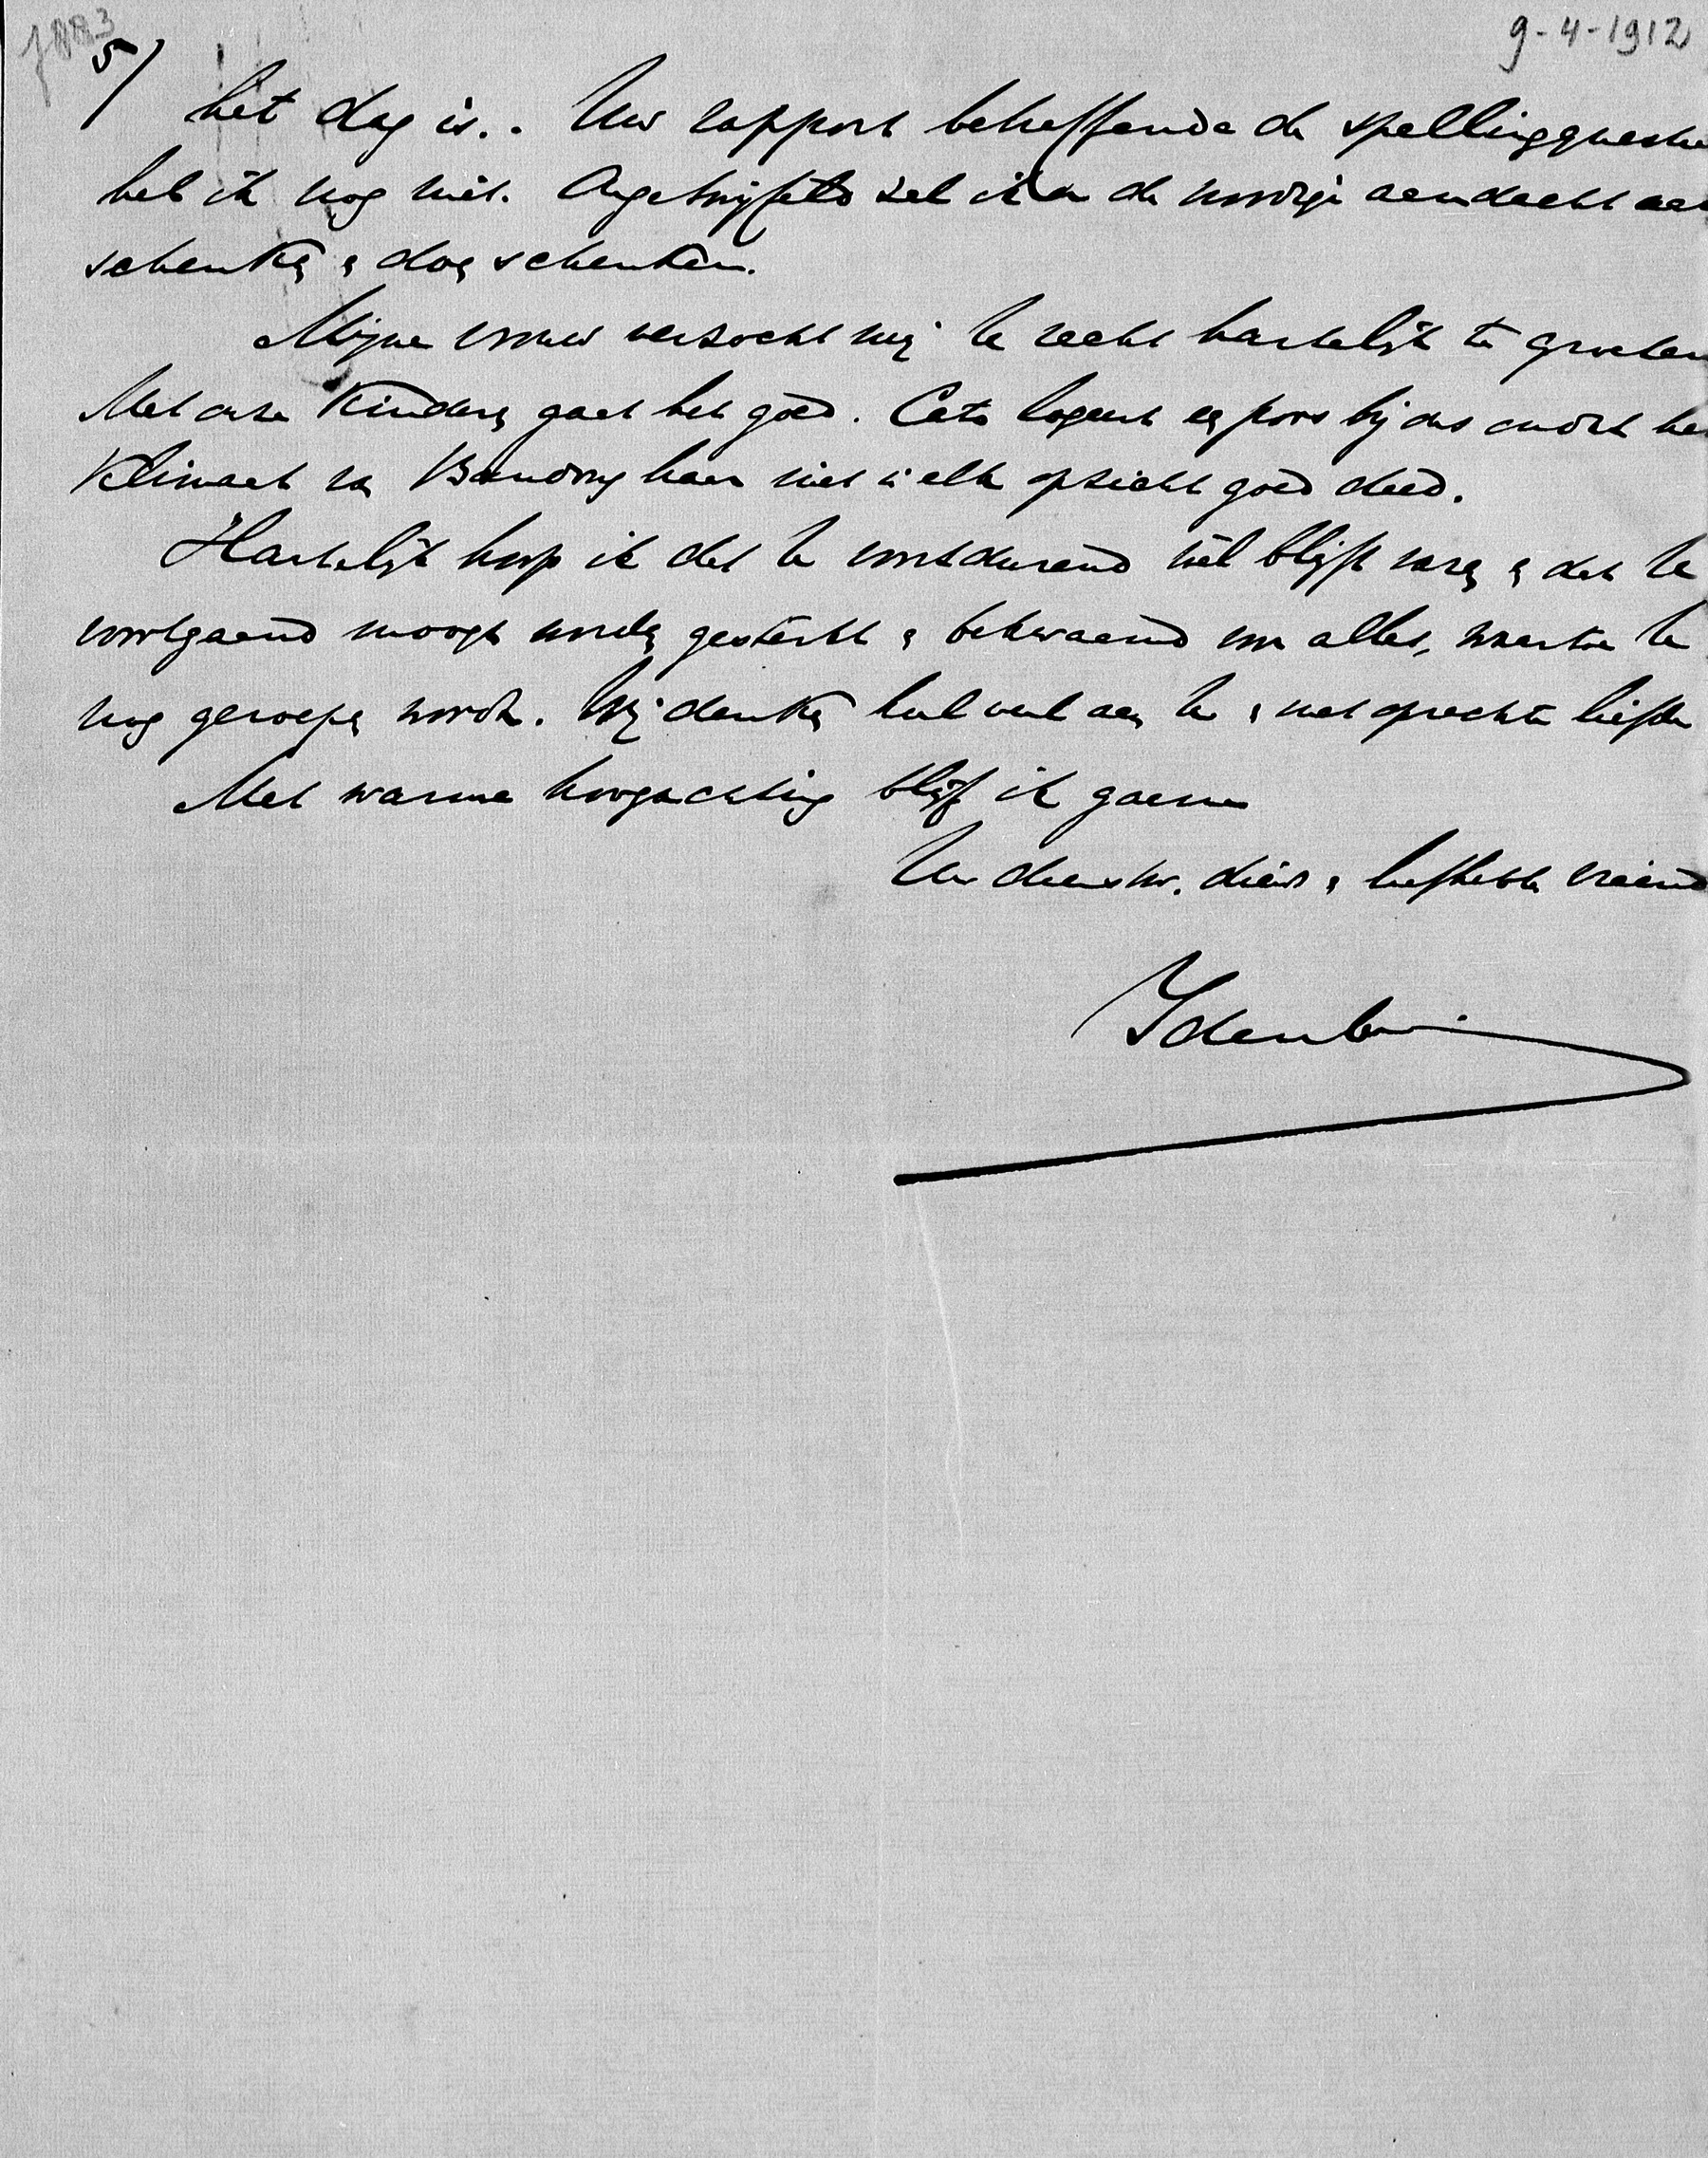 9-4-1912
5/
het dag is.. Uw rapport betreffende de spellingquestie
heb ik nog niet. Ongetwijfeld zal ik er de noodige aandacht aan
schenken & doen schenken.
Mijne vrouw verzocht mij U recht hartelijk te groeten
Met onze kinderen gaat het goed. Cato logeert een poos bij ons omdat het
Klimaat van Bandong haar niet in elk opzicht goed deed.
Hartelijk hoop ik dat U voortdurend wèl blijft varen & dat U
voortgaand moogt worden gesterkt & bekwaamd voor alles, waartoe U
nog geroepen wordt. Wij denken heel veel aan U & met oprechte liefde
Met warme hoogachting blijf ik gaarne
Uw dienstw. dienr & liefhebb. vriend
Idenburg